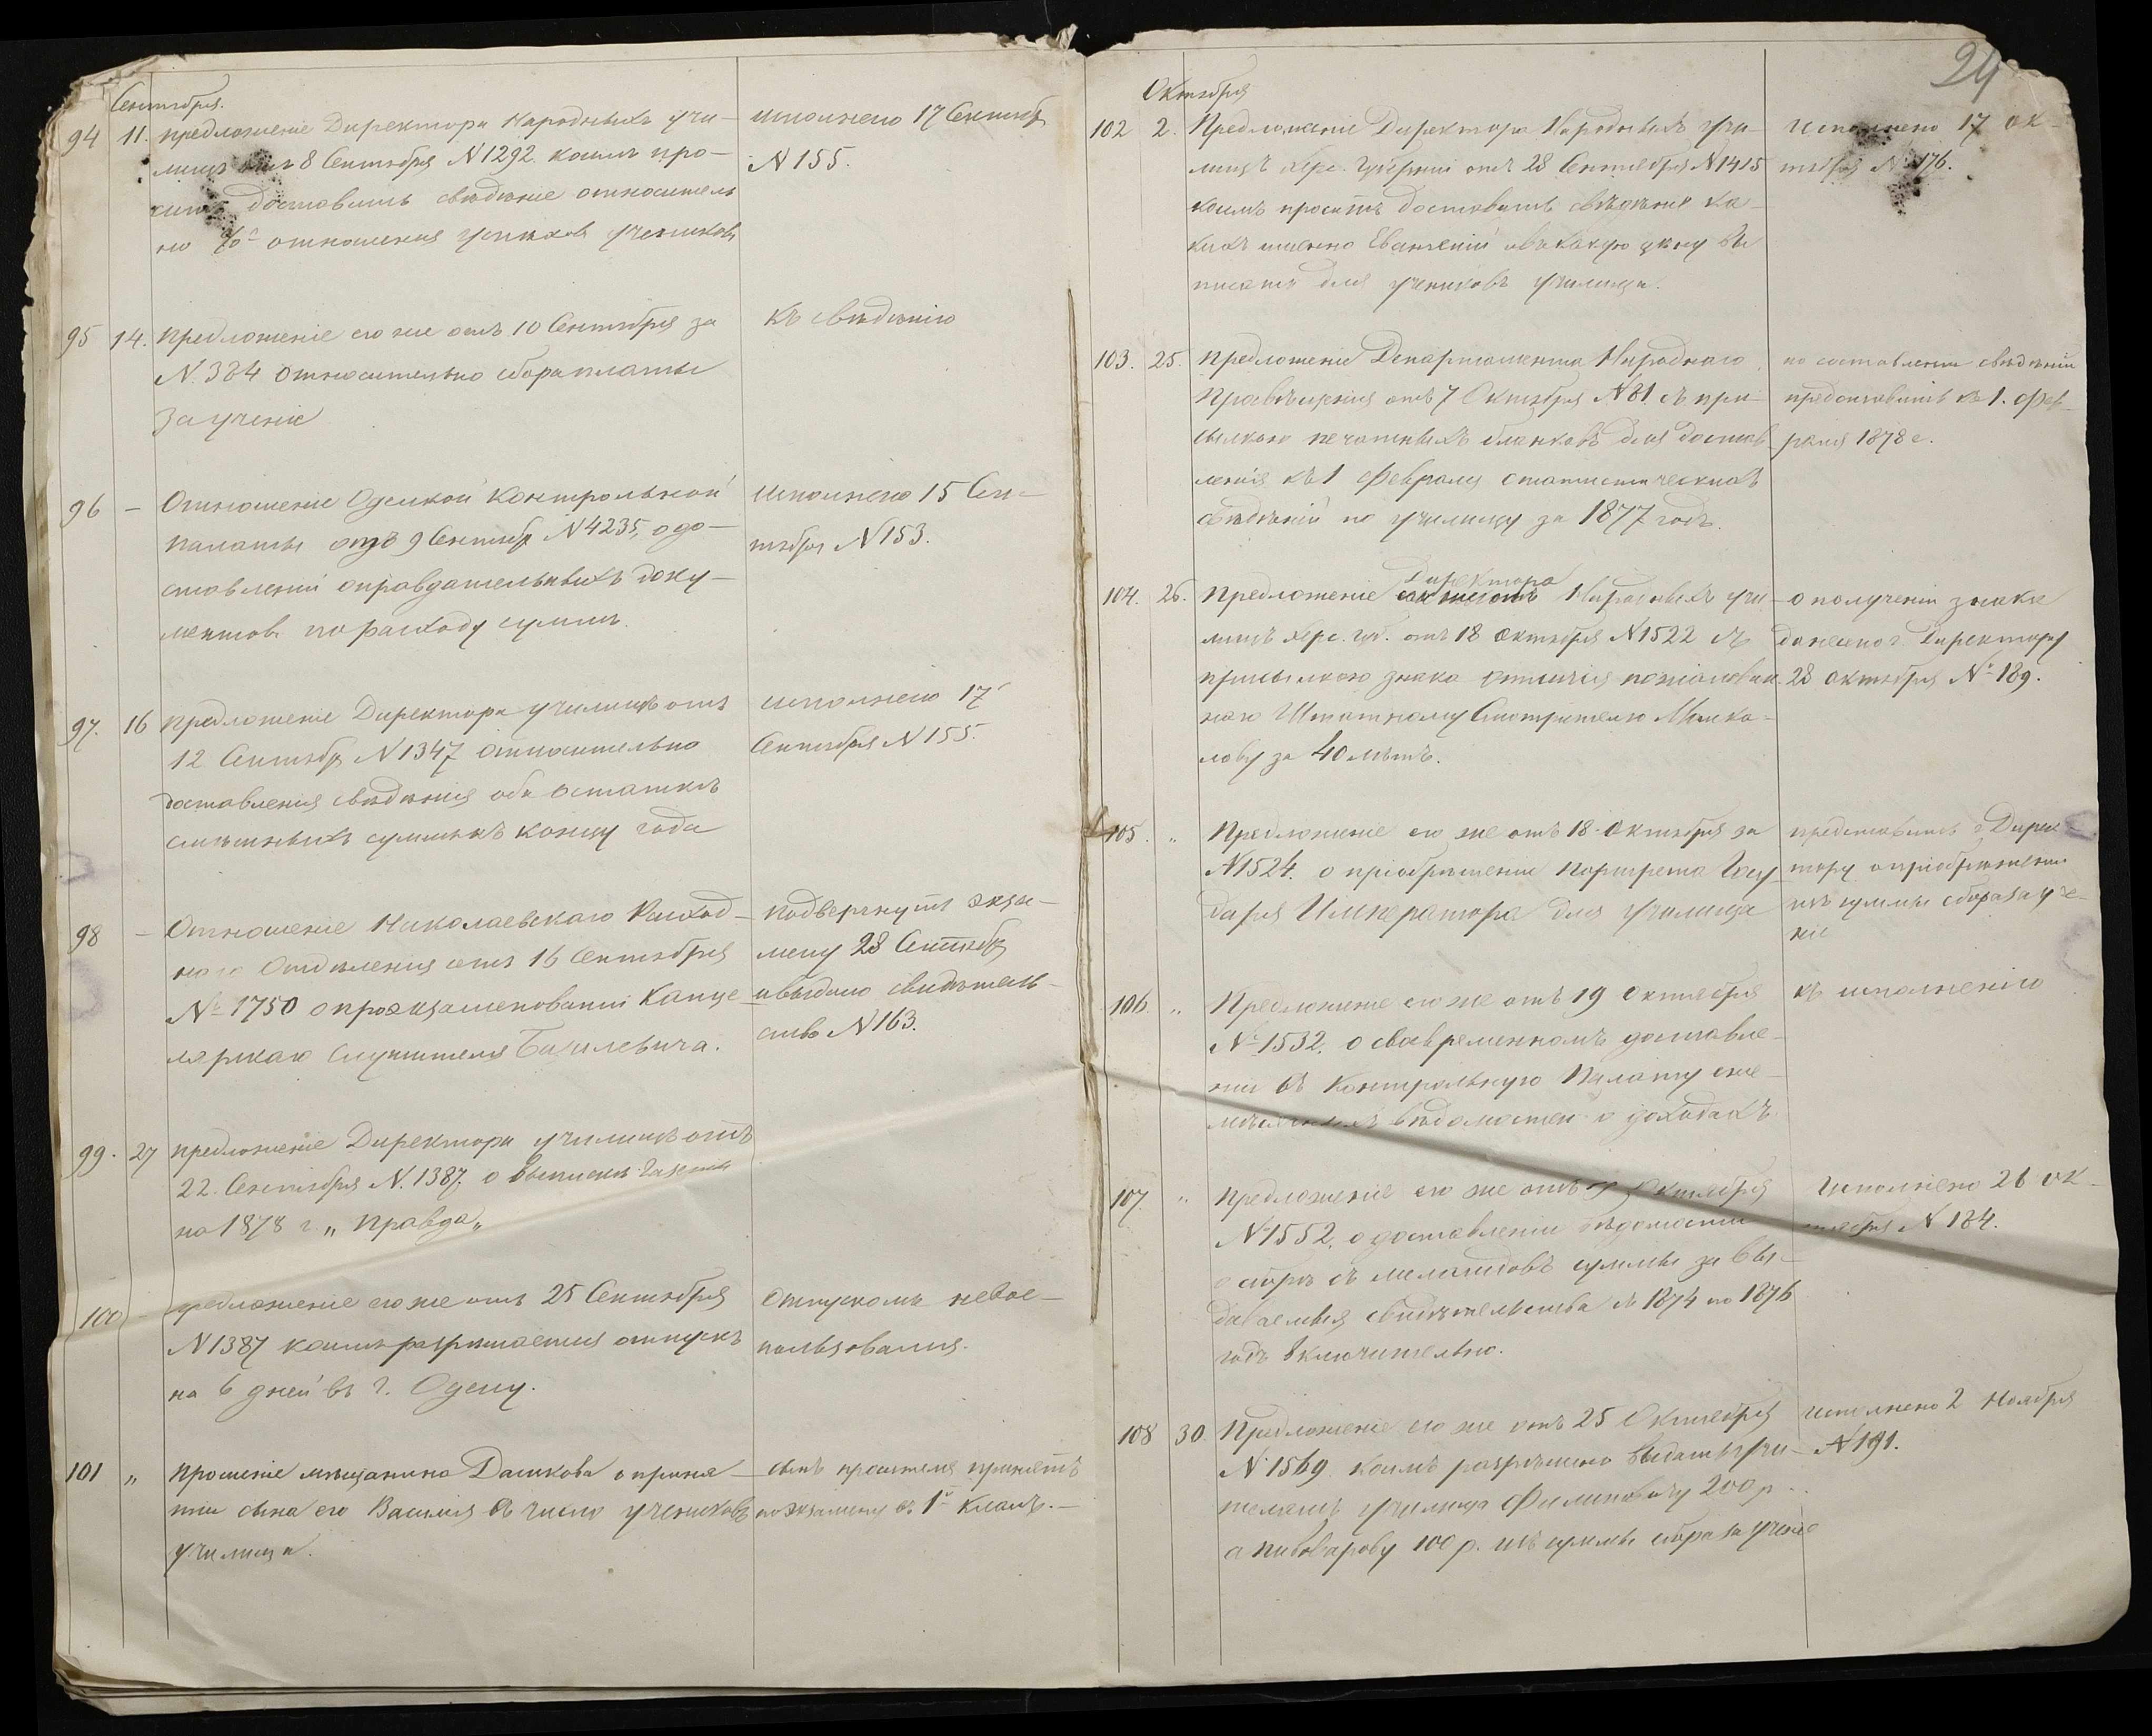 Сентября.
94 11. предложеніе Директора Народныхъ учи-
лищъ отъ 8 Сентября N 1292. коимъ про-
ситъ доставить свѣдѣніе относитель
но %о отношенія успѣховъ учениковъ
исполнено 17 Сентябр
N 155.
95 14. Предложеніе его же отъ 10 Сентября за
N. 384 относительно сбора платы
за ученіе
къ свѣдѣнію
96 — Отношеніе Одесской Контрольной
палаты отъ 9 Сентябр N 4235, о до-
ставленіи оправдательныхъ доку-
ментовъ по расходу суммъ.
Исполнено 15 Сен-
тября N 153.
97. 16 Предложеніе Директора училищъ отъ
12 Сентябр N 1347 относительно
доставленія свѣдѣнія объ остаткѣ
смѣтныхъ суммъ къ концу года
исполнено 17
Сентября N 155.
98 — Отношеніе Николаевскаго Расход-
наго Отдѣленія отъ 16 Сентября
№ 1750 о проэкзаменованіи Канце
лярскаго Служителя Базилевича.
подвергнутъ экза-
мену 28 Сентябр
и выдано свидѣтель-
ство N 163.
99. 27 предложеніе Директора училищъ отъ
22. Сентября N. 1387. о выпискѣ газеты
на 1878 г. „Правда„
100 — предложеніе его же отъ 25 Сентября
N 1387 коимъ разрѣшается отпускъ
на 6 дней въ г. Одессу.
Отпускомъ не вос-
пользовался.
101 „ Прошеніе мѣщанина Дашкова о приня-
тіи сына его Василія въ число учениковъ
училища.
сынъ просителя принятъ
по экзамену въ 1й классъ.—
24
Октября
102 2. Предложеніе Директора Народныхъ учи-
лищъ Херс. Губерніи отъ 28 Сентября N 1415
коимъ проситъ доставить свѣдѣніе ка-
кихъ именно Евангелій и въ какую цѣну вы
писать для учениковъ училища.
Исполнено 17 Ок-
тября N 176.
103. 25. Предложеніе Департамента Народнаго
Просвѣщенія отъ 7 Октября N 81. съ при-
сылкою печатныхъ бланковъ для достав
ленія къ 1 Февралю статистическихъ
свѣдѣній по училищу за 1877 годъ.
по составленіи свѣдѣній
представить къ 1. Фев-
раля 1878 г.
104. 26. Предложеніе Директора Народныхъ учи-
лищъ Херс. губ. отъ 18 Октября N 1522 съ
присылкою знака отличія пожалован
наго Штатному Смотрителю
за 40 лѣтъ.
о полученіи знака
донесено г. Директору
28 Октября № 189.
105. „ Предложеніе его же отъ 18 Октября за
N 1524. о пріобрѣтеніи портрета Госу
даря Императора для училища
представить г. Дирек
тору о пріобрѣтеніи
изъ суммы сбора за уче-
ніе
106. „ Предложеніе его же отъ 19 Октября
№ 1532. о своевременномъ доставле-
ніи въ Контрольную Палату еже-
мѣсячныхъ вѣдомостей о доходахъ
къ исполненію
107. „ Предложеніе его же отъ Октября
N 1552, о доставленіи вѣдомости
о сборѣ съ суммы за вы-
даваемыя свидѣтельства съ 1874 по 1876
годъ включительно.
Исполнено 26 Ок-
тября N 184.
108 30. Предложеніе его же отъ 25 Октября
N 1569. коимъ разрѣшено выдать учи-
телямъ училища Филиповичу 200 р.
а Пивоварову 100 р. изъ суммы сбора за ученіе
Исполнено 2 Ноября
N 191.